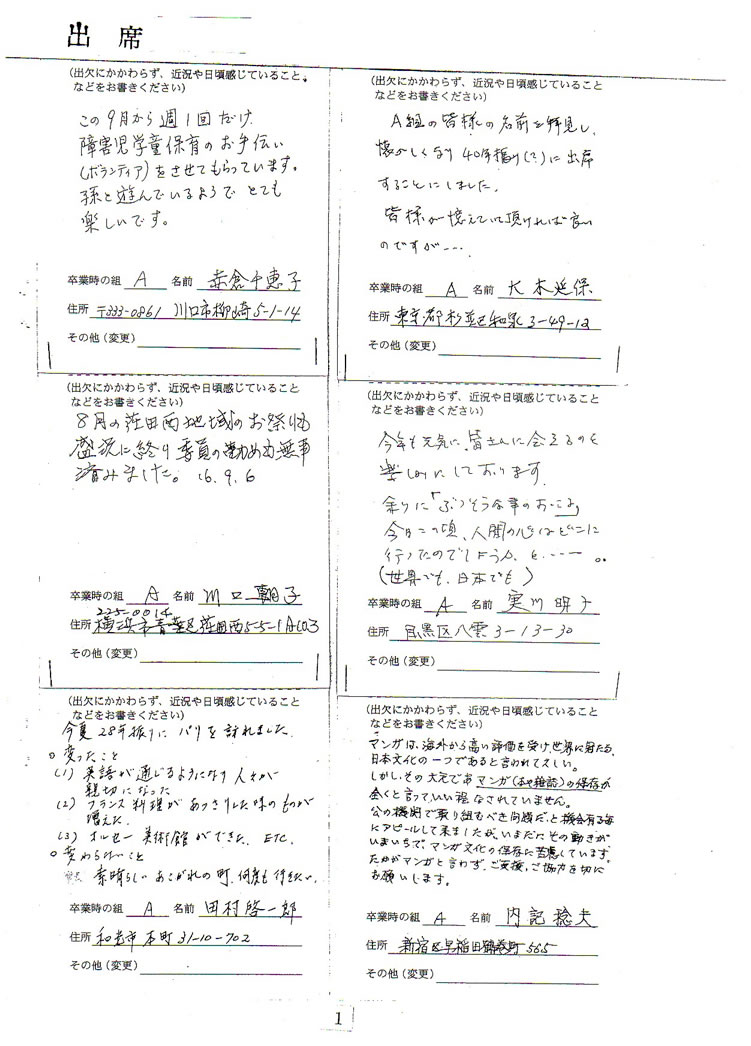 出席
(出欠にかかわらず、近況や日頃感じていること、
などをお書きください)
この9月から週1回だけ
障害児学童保育のお手伝い
(ボランティア)をさせてもらっています。
孫と遊んでいるようでとても
楽しいです。
卒業時の組 A 名前 赤倉千恵子
住所 〒333-0861 川口市柳崎5-1-14
その他(変更)
(出欠にかかわらず、近況や日頃感じていること
などをお書きください)
A組の皆様の名前を拝見し、
懐かしくなり40年振り(?)に出席
することにしました。
皆様が憶えていて頂ければ良い
のですが---.
卒業時の組 A 名前 大木延保
住所 東京都杉並区和泉3-49-12
その他(変更)
(出欠にかかわらず、近況や日頃感じていること
などをお書きください)
8月の荏田西地域のお祭りも
盛況に終り委員の勤めも無事
済みました。16.9.6
卒業時の組 A 名前 川口朝子
225-0014
住所 横浜市青葉区荏田西5-5-1
その他(変更)
(出欠にかかわらず、近況や日頃感じていること
などをお書きください)
今年も元気に、皆さんに会えるのを
楽しみにしております
余りに「ぶっそうな事のおこる」
今日この頃、人間の心はどこに
行ったのでしょうか、と、----。。
(世界でも、日本でも)
卒業時の組 A 名前 実川明子
住所 目黒区八雲3-13-30
その他(変更)
(出欠にかかわらず、近況や日頃感じていること
などをお書きください)
今夏28年振りにパリを訪れました.
○変ったこと
(1) 英語が通じるようになり人々が
親切になった
(2) フランス料理があっさりした味のものが
増えた.
(3) オルセー美術館ができた. ETC.
○変わらないこと
素晴らしいあこがれの町、何度も行きたい.
卒業時の組 A 名前 田村啓一郎
住所 和光市本町31-10-702
その他(変更)
(出欠にかかわらず、近況や日頃感じていること
などをお書きください)
マンガは、海外から高い評価を受け、世界に冠たる、
日本文化の一つであると言われて久しい。
しかし、その大元であるマンガ(本や雑誌)の保存が
全くと言っていい程なされていません。
公の機関で取り組むべき問題だと機会有る毎
にアピールして来ましたが、いまだにその動きが
いまいちで、マンガ文化の保存に苦慮しています。
たかがマンガと言わず、ご支援、ご協力を切に
お願いします。
卒業時の組 A 名前 内記稔夫
住所 新宿区早稲田鶴巻町565
その他(変更)
1